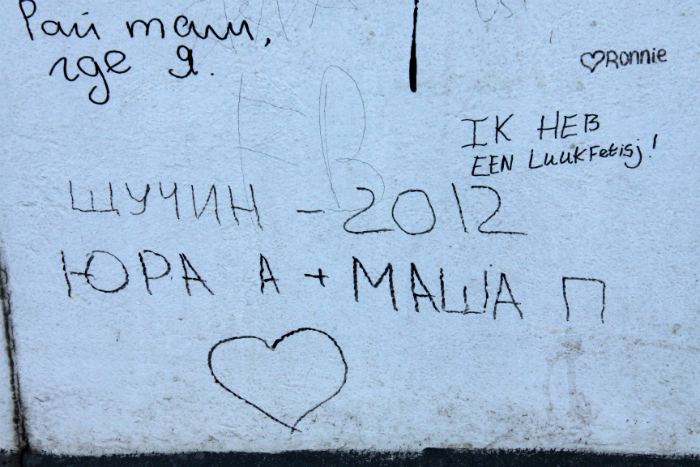 Рай там,
где я.
♡Ronnie
IK HEB
EEN LuukFetisj!
ЩУЧИН - 2012
ЮРА А + МАША П